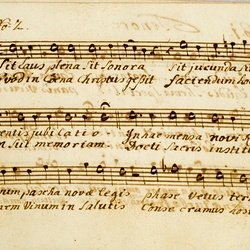 Sit laus plena Sit Sonora Sit jucunda Si
in Cœna Christus gessit faciendum
entis jubilatio In hac mensa novi
n. Sui memoriam. Docti Sacris institu
num pascha novæ legis phase vetus ter
nem Vinum in Salutis Consecramus